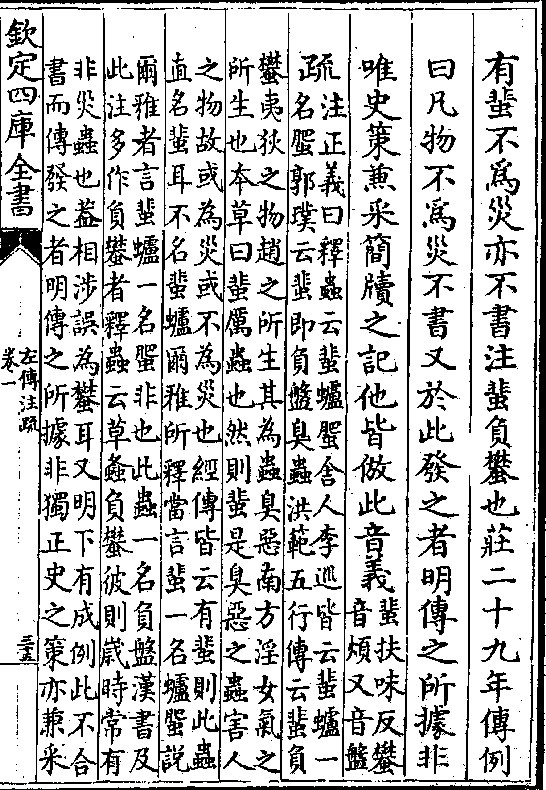 有蜚不爲災亦不書注蜚負蠜也莊二十九年傳例
曰凡物不爲災不書又於此發之者明傳之所據非
唯史策兼采簡牘之記他皆倣此音義
蜚扶味反蠜
音煩又音盤
疏
注正義曰釋蟲云蜚蠦蜰舍人李巡皆云蜚蠦一
名蜰郭璞云蜚即負盤臭蟲洪範五行傳云蜚負
蠜夷狄之物趙之所生其為蟲臭惡南方淫女氣之
所生也本草曰蜚厲蟲也然則蜚是臭惡之蟲害人
之物故或為災或不為災也經傳皆云有蜚則此蟲
直名蜚耳不名蜚蠦爾雅所釋當言蜚一名蠦蜰說
爾雅者言蜚蠦一名蜰非也此蟲一名負盤漢書及
此注多作負蠜者釋蟲云草螽負蠜彼則歲時常有
非災蟲也葢相涉誤為蠜耳又明下有成例此不合
書而傳發之者明傳之所據非獨正史之策亦兼采
欽定四庫全書
左傳注疏
卷一
三十五